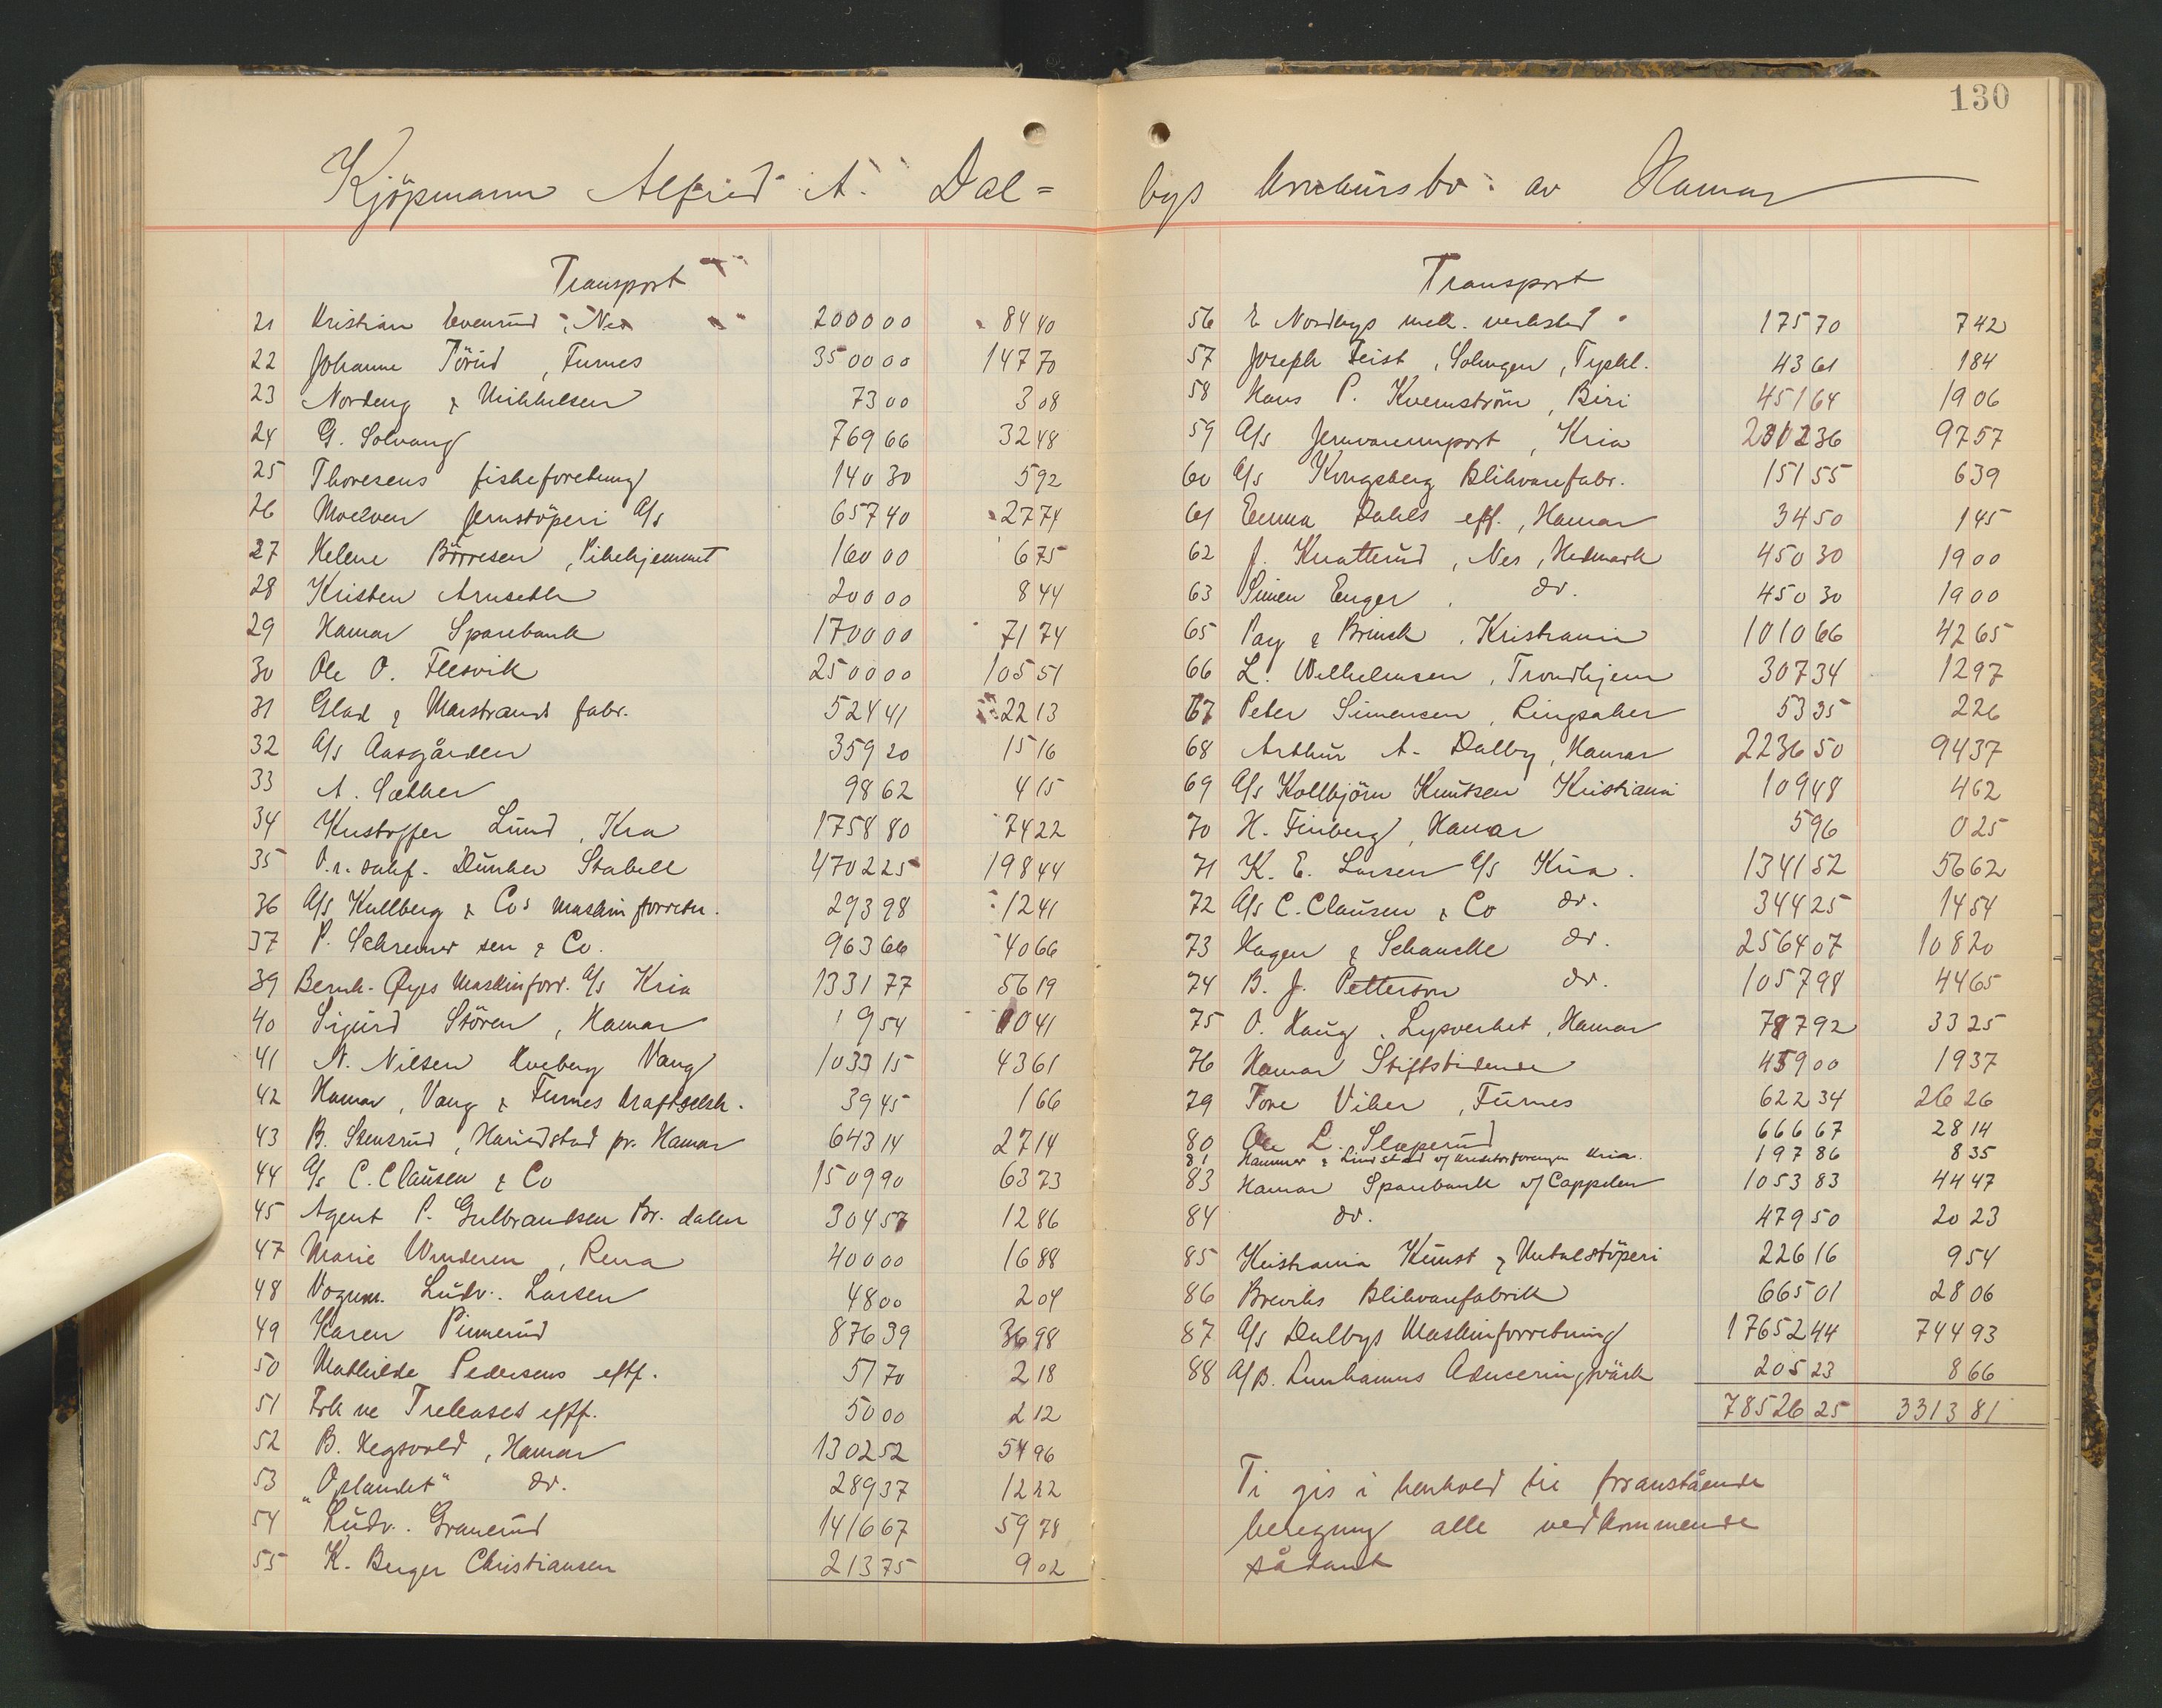 130
Kjöpmann Alfred A. Dal=
Transport
21 Kristian Evenrud, Nes 2000 00 84 40
22 Johanne Törud, Furnes 3500 00 147 70
23 Nordeng & Mikkelsen 73 00 3 08
24 G. Solvang 769 66 32 48
25 Thoresens fiskeforretning 140 30 5 92
26 Moelven Jernstöperi A/s 657 40 27 74
27 Helene Börresen, Pikehjemmet 160 00 6 75
28 Kristen Arnseth 200 00 8 44
29 Hamar Sparebank 1700 00 71 74
30 Ole O. Flesvik 2500 00 105 51
31 Glad & Marstrands fabr. 524 41 22 13
32 A/s Aasgården 359 20 15 16
33 A. Sæther 98 62 4 15
34 Kristoffer Lund, Kra 1758 80 74 22
35 O.r.sakf. Dunker Stabell 4702 25 198 44
36 A/s Kullberg & Cos maskinforretn. 293 98 12 41
37 P. Schreiner sen & Co. 963 66 40 66
39 Bernh. Øyes Maskinforr. A/s Kria 1331 77 56 19
40 Sigurd Stören, Hamar 9 54 0 41
41 N. Nilsen Kveberg Vang 1033 15 43 61
42 Hamar, Vang & Furnes kraftselsk. 39 45 1 66
43 B. Stensrud, Harildstad pr. Hamar 643 14 27 14
44 A/s C. Clausen & Co 1509 90 63 73
45 Agent P. Gulbrandsen Br. dalen 304 57 12 86
47 Marie Vinderen, Rena 400 00 16 88
48 Vognm. Ludv. Larsen 48 00 2 04
49 Karen Pinnerud 876 39 36 98
50 Mathilde Pedersens eftf. 51 70 2 18
51 Frk eftf. 50 00 2 12
52 B. Hegsvold, Hamar 1302 52 54 96
53 "Oplandet" do. 289 37 12 22
54 Ludv. Granerud 1416 67 59 78
55 K. Berger Christiansen 213 75 9 02
bys konkursbo: av Hamar
Transport
56 E Nordbys mek. verksted 175 70 7 42
57 Joseph Feist, Solingen, Tyskl. 43 61 1 84
58 Hans P. Kvernström, Biri 451 64 19 06
59 A/s Jernvareimport, Kria 2312 36 97 57
60 A/s Kongsberg Blikvarefabr. 151 55 6 39
61 Emma Dahls eff., Hamar 34 50 1 45
62 J. Knatterud, Nes, Hedmark 450 30 19 00
63 Simen Enger, do. 450 30 19 00
65 Pay & Brinck, Kristiania 1010 66 42 65
66 L. Wilhelmsen, Trondhjem 307 34 12 97
67 Peter Simensen, Ringsaker 53 35 2 26
68 Arthur A. Dalby, Hamar 2236 50 94 37
69 A/s Kolbjörn Knutsen Kristiania 109 48 4 62
70 H. Finberg, Hamar 5 96 0 25
71 K. E. Larsen A/s Kria. 1341 52 56 62
72 A/s C. Clausen & Co do. 344 25 14 54
73 Hagen & Schancke do. 2564 07 108 20
74 B. J. Petterson do. 1057 98 44 65
75 O. Haug, Lysverket, Hamar 787 92 33 25
76 Hamar Stiftstidende 459 00 19 37
79 Tore Viker, Furnes 622 34 26 26
80 Ole L. Sleperud 666 67 28 14
81 Hammer & Lindstad v/ Kreditorforeningen Kria. 197 86 8 35
83 Hamar Sparebank v/ Cappelen 1053 83 44 47
84 do. 479 50 20 23
85 Kristiania Kunst & Metalstöperi 226 16 9 54
86 Breviks Blikvarefabrik 665 01 28 06
87 A/s Dalbys Maskinforretning 17652 44 744 93
88 A/B. Lunhamns Aduceringsvärk 205 23 8 66
78526 25 3313 81
Ti gis i henhold til foranstående
beregning alle vedkommende
sådant